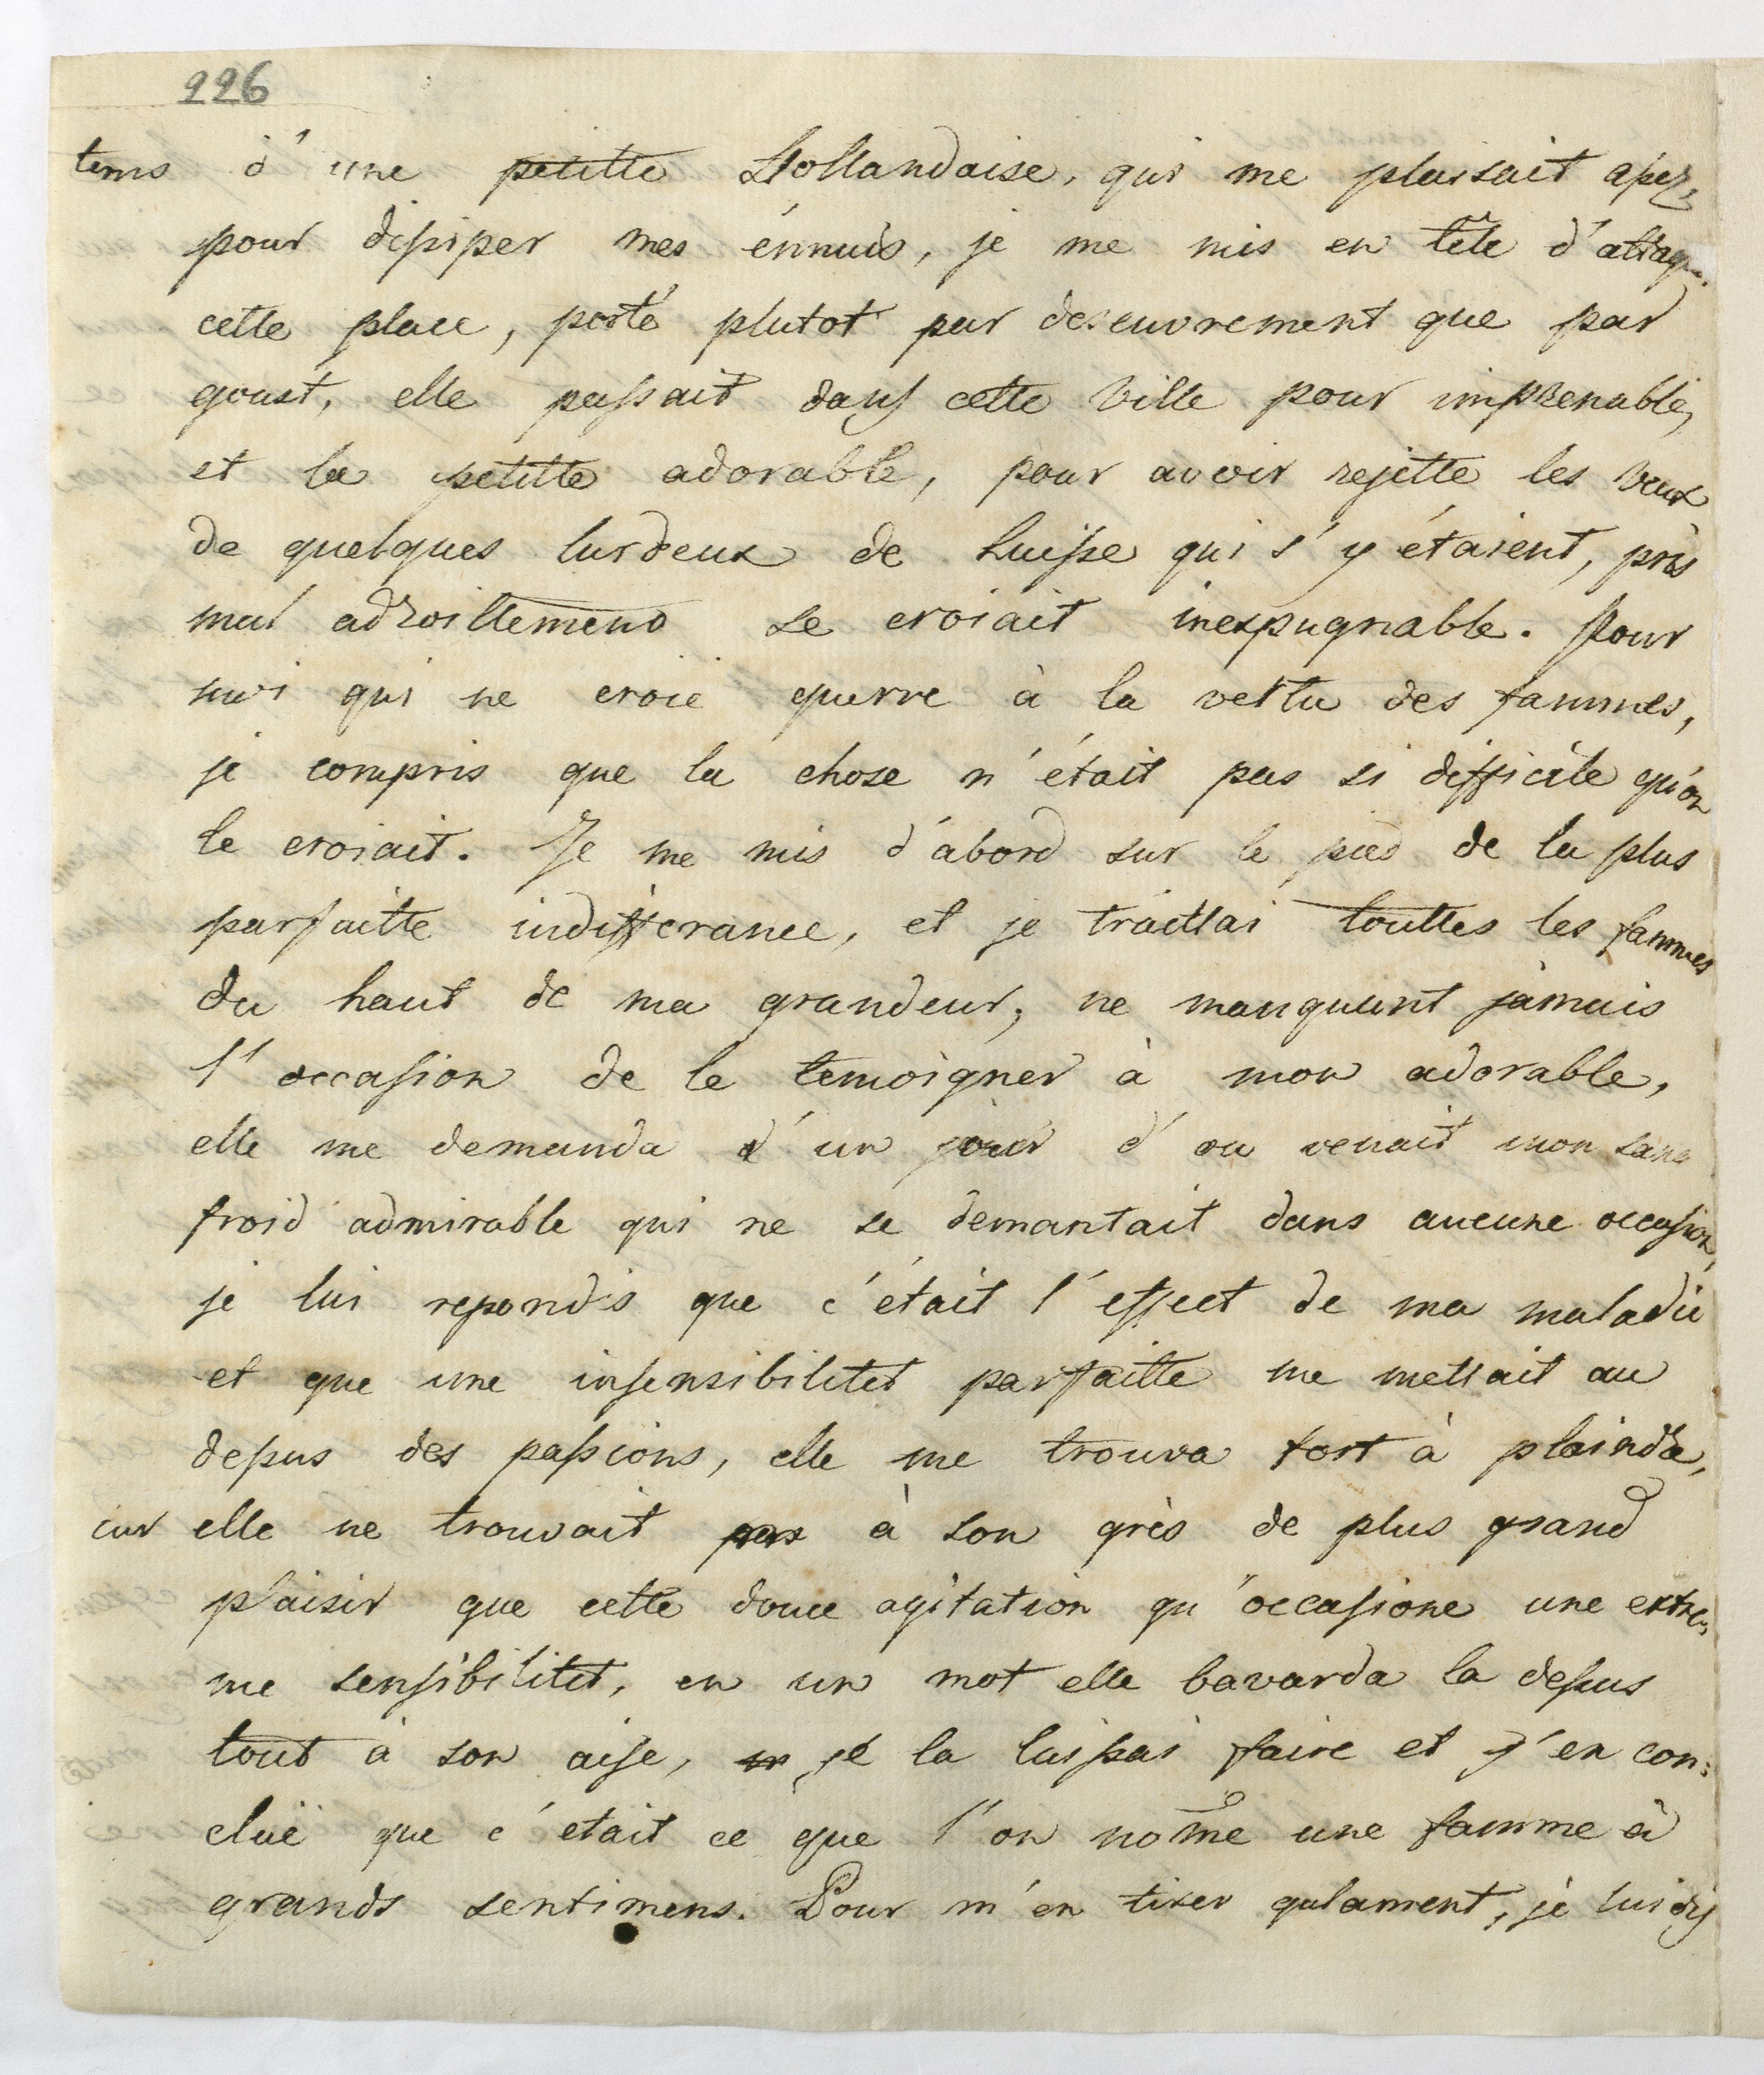 226
tems d'une petitte Hollandaise, qui me plaisait assez,
pour dissiper mes énnuis, je me mis en tête d'attaqu.
cette place, porté plutot par deseuvrement que par
goust, elle passait dans cette ville pour imprenable,
et la petitte adorable, pour avoir rejette les veux
de quelques lurdeux de Suisse qui s'y étaient, pris
mal adroittement se croiait inexpugnable. Pour
moi qui ne croie guerre à la vertu des fammes,
je compris que la chose n'était pas si difficile qu'on
le croiait. Je me mis d'abord sur le pied de la plus
parfaitte indifferance, et je traittai touttes les fammes
du haut de ma grandeur, ne manquant jamais
l'occasion de le temoigner à mon adorable,
elle me demanda d'un jour d'ou venait mon sang
froid admirable qui ne se demantait dans aucune occasion,
je lui repondis que c'était l'effect de ma maladie
et que une insensibilitet parfaitte me mettait au
dessus des passions, elle me trouva fort à plaindre,
car elle ne trouvait pas à son grès de plus grand
plaisir que cette douce agitation qu'occasione une extre,
me sensibilitet, en un mot elle bavarda la dessus
tout à son aise, je la laissai faire et j'en con:
cluë que c'etait ce que l'on nom̃e une famme à
grands sentimens. Pour m'en tirer galament, je lui dis